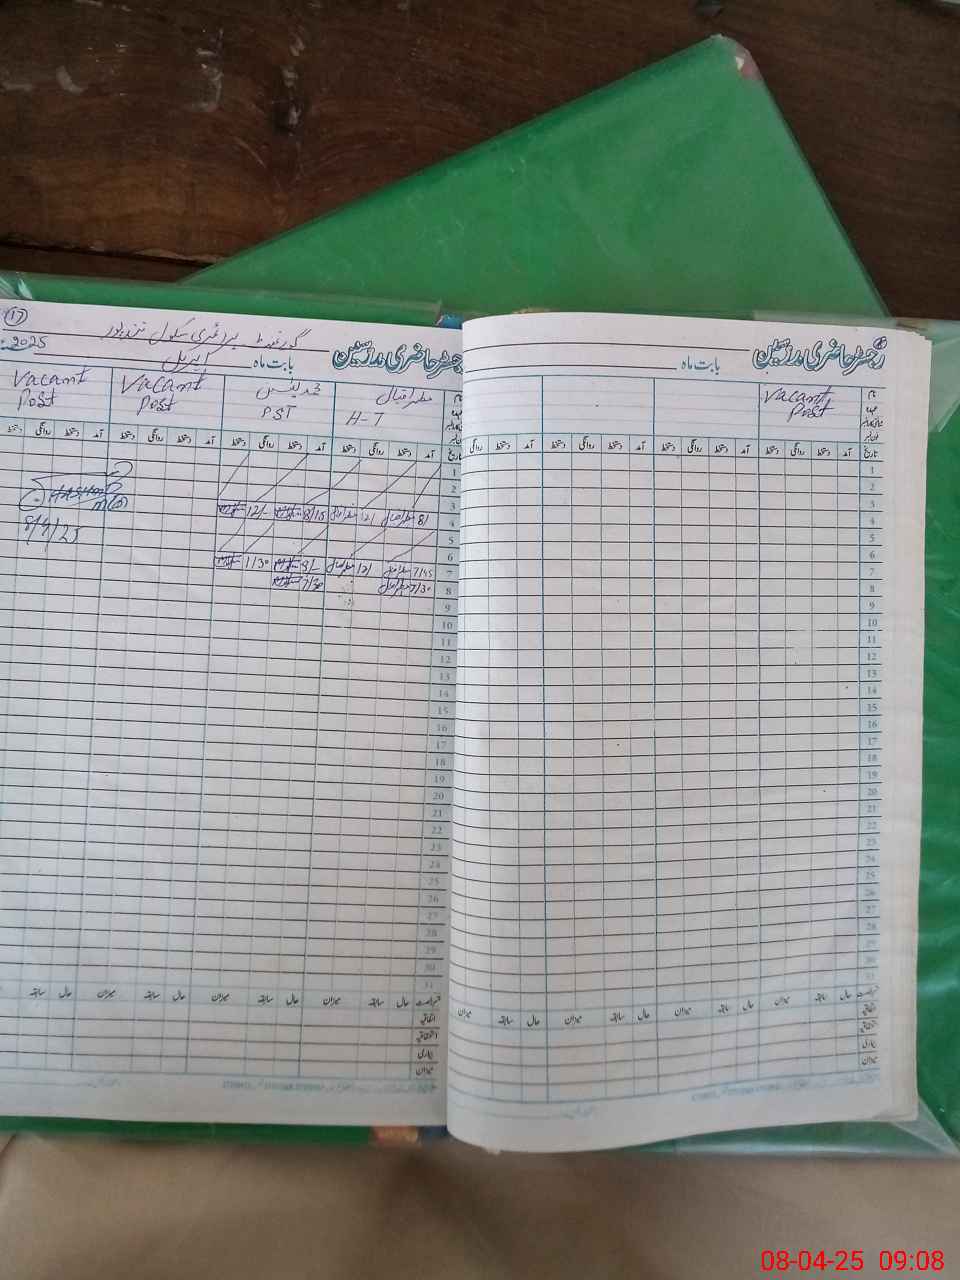 17
گورنمنٹ پرائمری سکول
رجسٹر حاضری مدرسین بابت ماہ اپریل 2025
مظہر اقبال
H-T
محمد یونس
PST
Vacant
Post
Vacant
Post
تاریخ آمد دستخط روانگی دستخط آمد دستخط روانگی دستخط آمد دستخط روانگی دستخط آمد دستخط
1
2
3
8/ 12/ 8/15 12/-
4
5
6
7
7/45 12/ 8/- 1/30
8
7/30 7/30
8/4/25
9
10
11
12
13
14
15
16
17
18
19
20
21
22
23
24
25
26
27
28
29
30
31
سابقہ حال میزان سابقہ حال میزان سابقہ حال میزان
اتفاقیہ
استحقاقیہ
بیماری
میزان
رجسٹر حاضری مدرسین بابت ماہ
نام
عہدہ
Vacant
Post
تاریخ آمد دستخط روانگی دستخط آمد دستخط روانگی دستخط آمد دستخط روانگی دستخط آمد دستخط روانگی
1
2
3
4
5
6
7
8
9
10
11
12
13
14
15
16
17
18
19
20
21
22
23
24
25
26
27
28
29
30
31
سابقہ حال میزان سابقہ حال میزان سابقہ حال میزان سابقہ حال میزان
اتفاقیہ
استحقاقیہ
بیماری
میزان
08-04-25 09:08